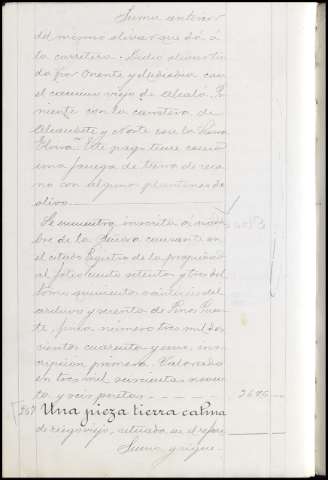 Suma anterior
del mismo olivar que dá á
la carretera. Dicho olivar lin-
da por Oriente y Mediodia con
el camino viejo de Alcalá, Po-
niente con la carretera de
Alcaudete y Norte con la
Este pago tiene como
una fanega de tierra de seca-
no con algunos plantones de
olivo.
Se encuentra inscrita á nom-
bre de la Señora causante en
el citado Registro de la propiedad
al folio ciento setenta y tres del
tomo quinientos del
archivo y sesenta de Pinos Puen-
te, finca número tres mil dos-
cientos cuarenta y una, ins-
cripción primera. Valorado
en tres mil seiscientas noven-
ta y seis pesetas - - - - - 3696 --
267 Una pieza tierra calma
de riego viejo, situada en el
Suma y sigue